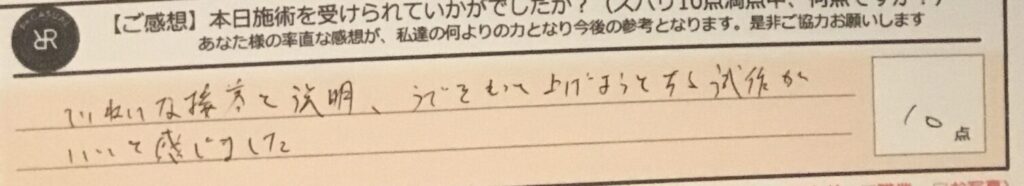 【ご感想】本日施術を受けられていかがでしたか？（ズバリ10点満点中、何点ですか？）
あなた様の率直な感想が、私達の何よりの力となり今後の参考となります。是非ご協力お願いします
ていねいな接客と説明、うでをもって上げようとする試作が
いいと感じました
10点